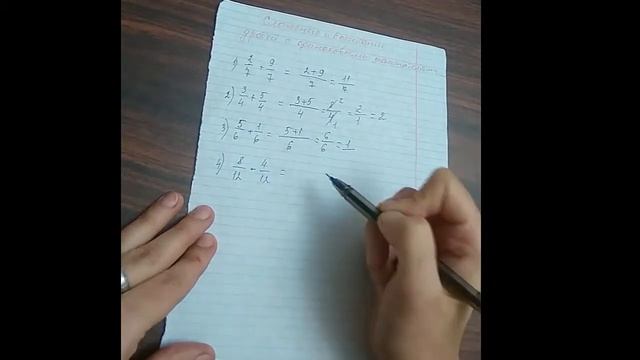 Сложение и вычитание
дроби с одинаковыми знаменателями
1) 2/7 + 9/7 = 2+9/7 = 11/7
2) 3/4 + 5/4 = 3+5/4 = 8/4 2 1 = 2/1 = 2
3) 5/6 + 1/6 = 5+1/6 = 6/6 = 1
4) 8/12 - 4/12 =